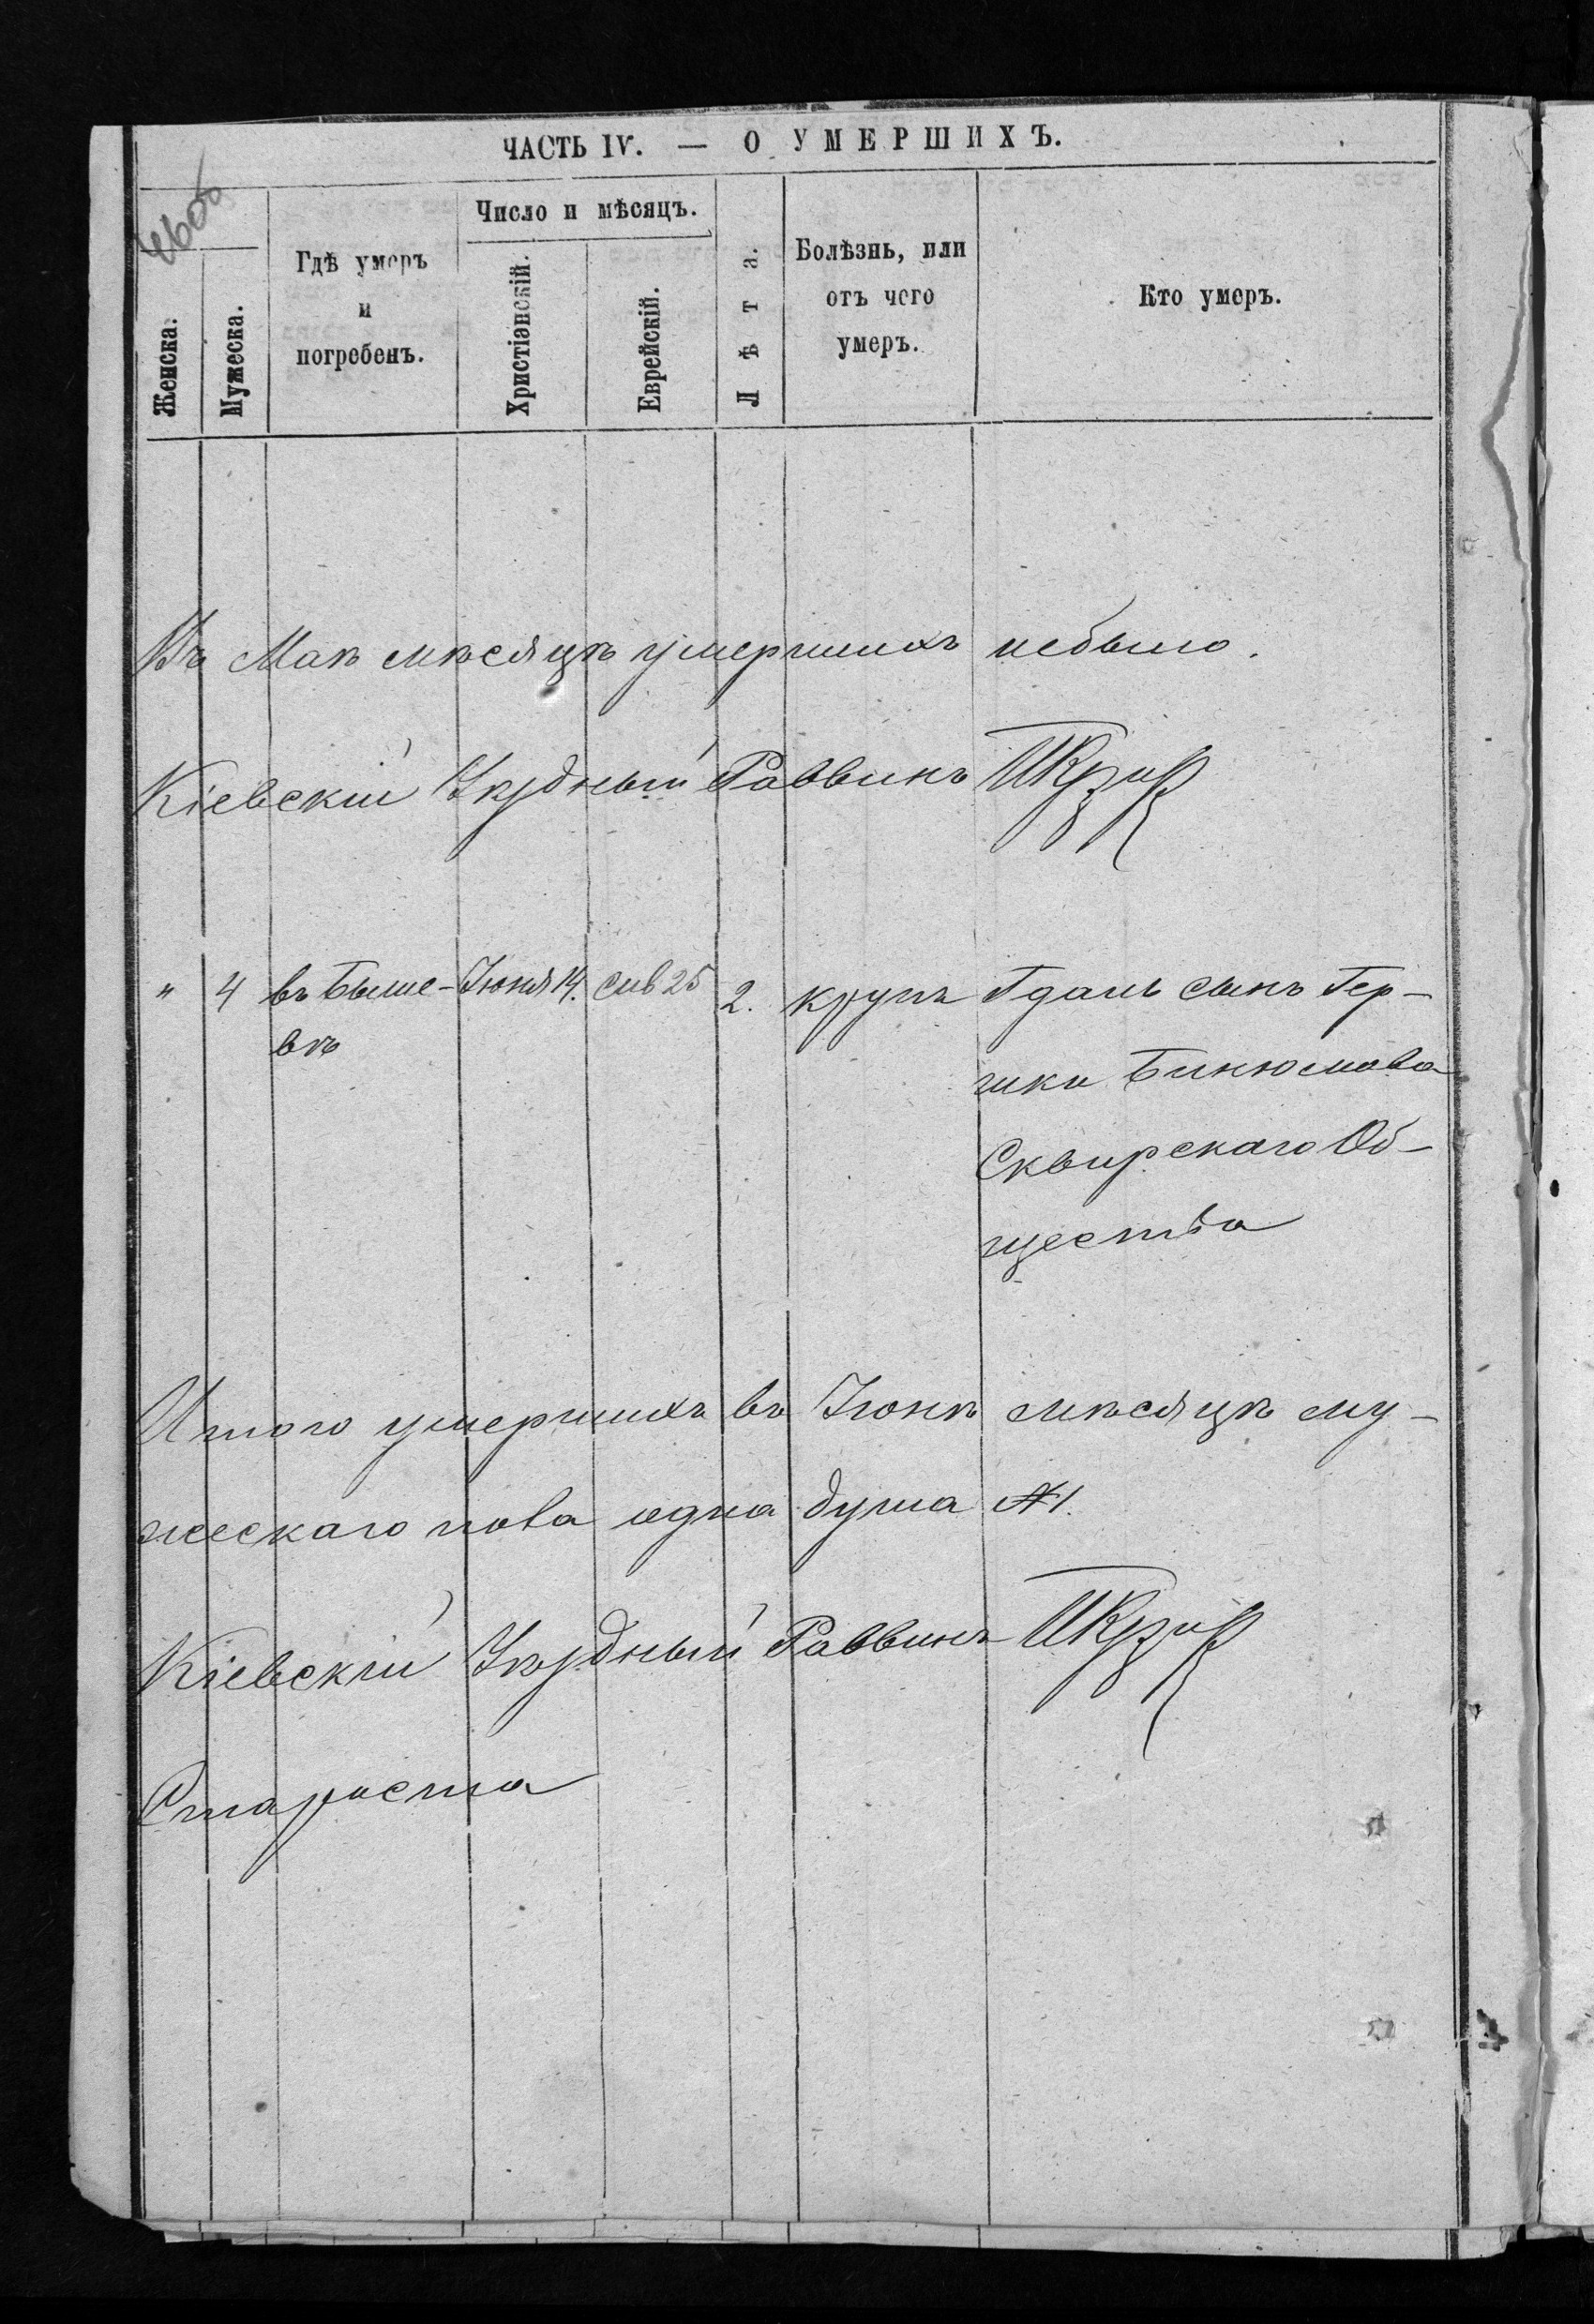 ЧАСТЬ IV. — О УМЕРШИХЪ.
Женска.
Мужеска.
Гдѣ умеръ
и
погребенъ.
Число и мѣсяцъ.
Христіанскій.
Еврейскій.
Лѣта.
Болѣзнь, или
отъ чего
умеръ.
Кто умеръ.
Въ Маѣ мѣсяцѣ умершихъ небыло.
Кіевскій Уѣздный Раввинъ
" 4 въ Быше- Іюня 14. сив 25 2. крупъ Гдаль сынъ Гер-
вѣ
шки Бинюмова
Сквирскаго Об-
щества
Итого умершихъ въ Іюнѣ мѣсяцѣ му-
жескаго пола одна душа №1.
Кіевскій Уѣздный Раввинъ
Староста